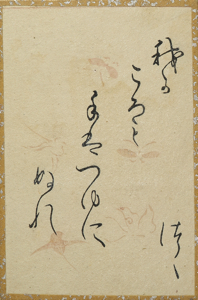 我か
ころも
手はつゆに
ぬれ
つゝ